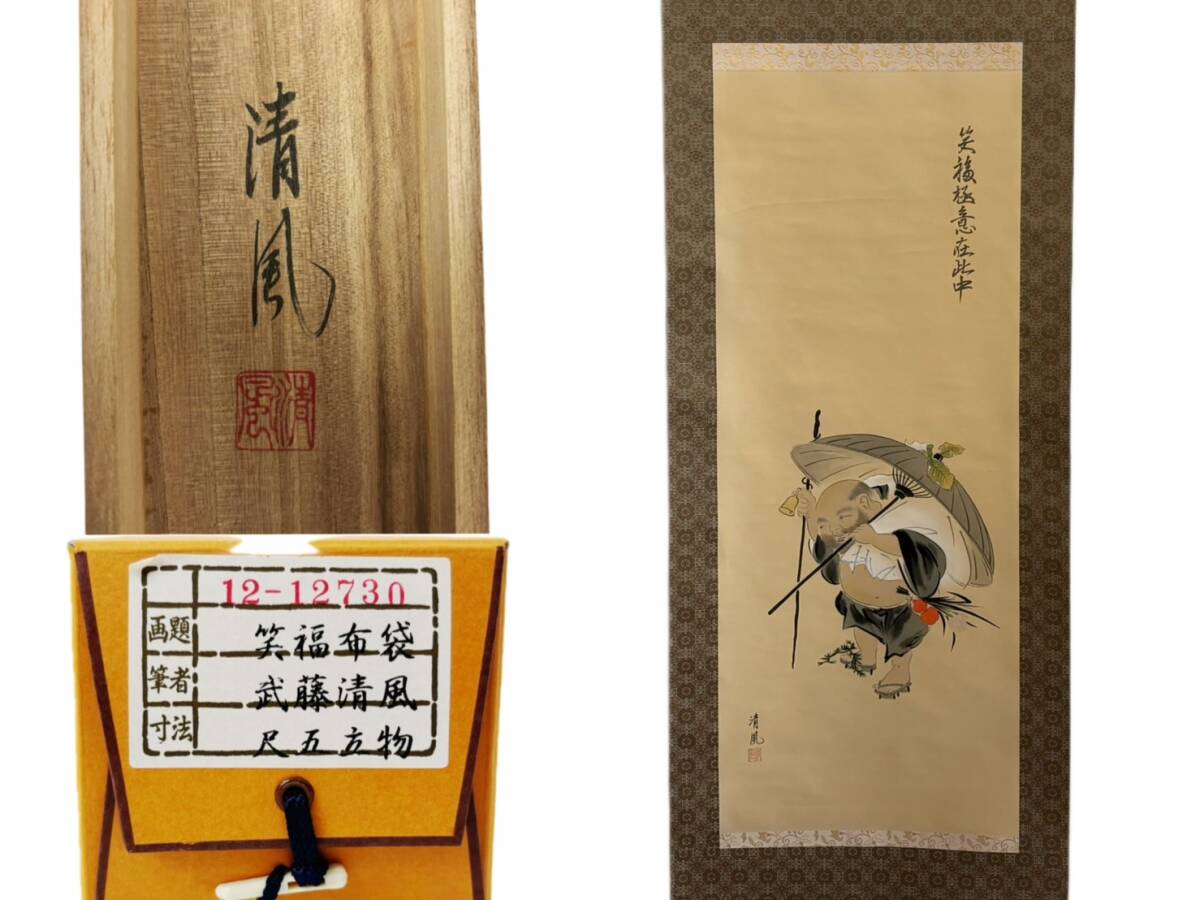 清風
清風
12-12730
画題 笑福布袋
筆者 武藤清風
寸法 尺五立物
笑福極意在此中
清風